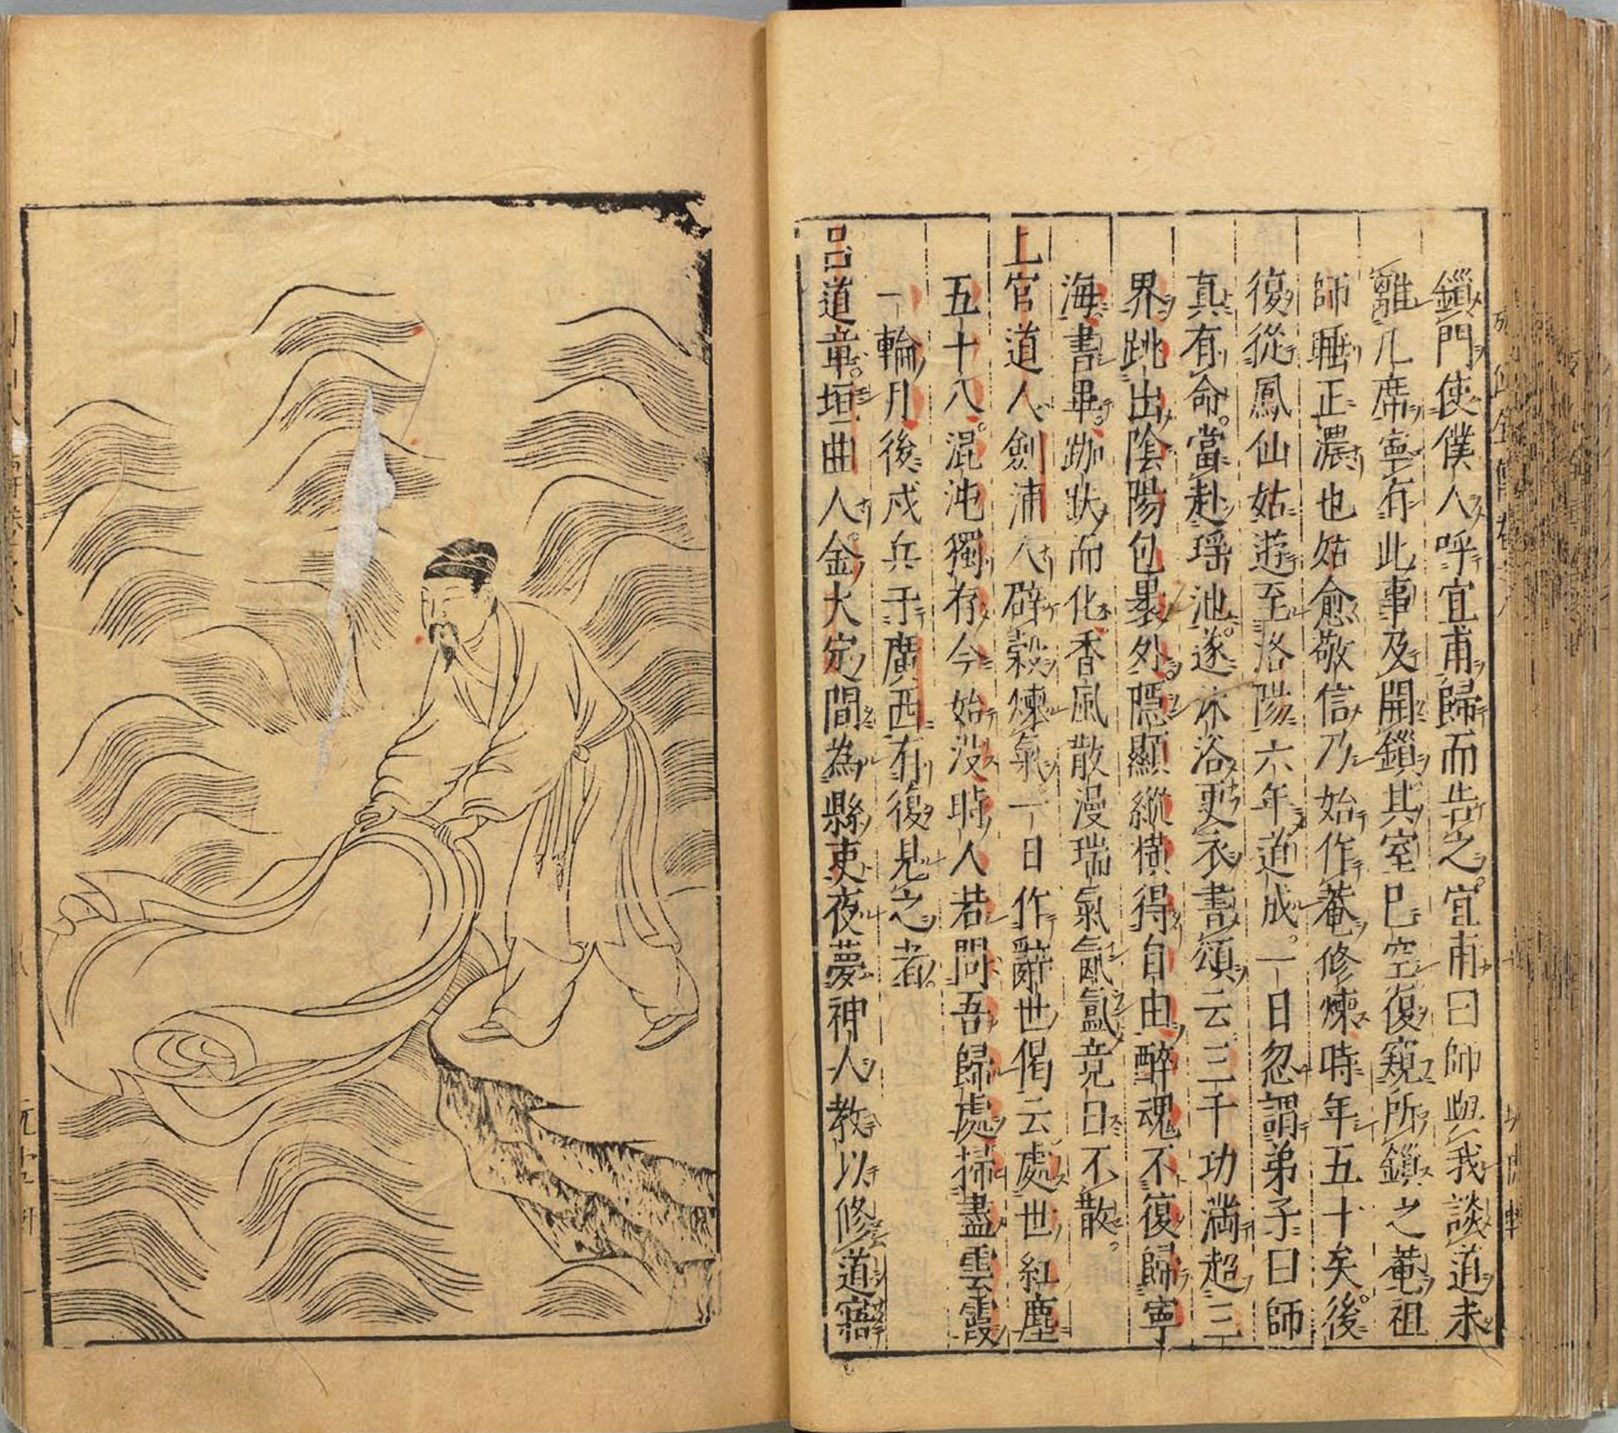 鎖門使僕人呼宜甫歸而告之宜甫曰師與我談道未
離几席寧有此事及開鎖其室已空復窺所鎖之菴祖
師睡正濃也姑愈敬信乃始作菴修煉時年五十矣後
復從鳳仙姑遊至洛陽六年道成一日忽謂弟子曰師
真有命當赴瑶池遂沐浴更衣書頌云三千功満超三
界跳出陰陽包裹外隱顯縱橫得自由醉魂不復歸寧
海書畢跏趺而化香風散漫瑞氣氤氳竟日不散
上官道人劍浦人辟穀煉氣一日作辭世偈云處世紅塵
五十八混沌獨存今始没時人若問吾歸處掃盡雲霞
一輪月後戍兵于廣西有復見之者
呂道章垣曲人金大定間為縣吏夜夢神人教以修道寤